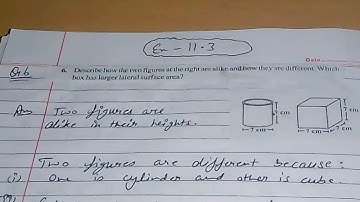 Ex - 11.3
Date
Q.6. 6. Describe how the two figures at the right are alike and how they are different. Which
box has larger lateral surface area?
Ans Two figures are
alike in their heights.
7 cm
7 cm
7 cm
7 cm
7 cm
Two figures are different because:
(i) One is cylinder and other is cube.